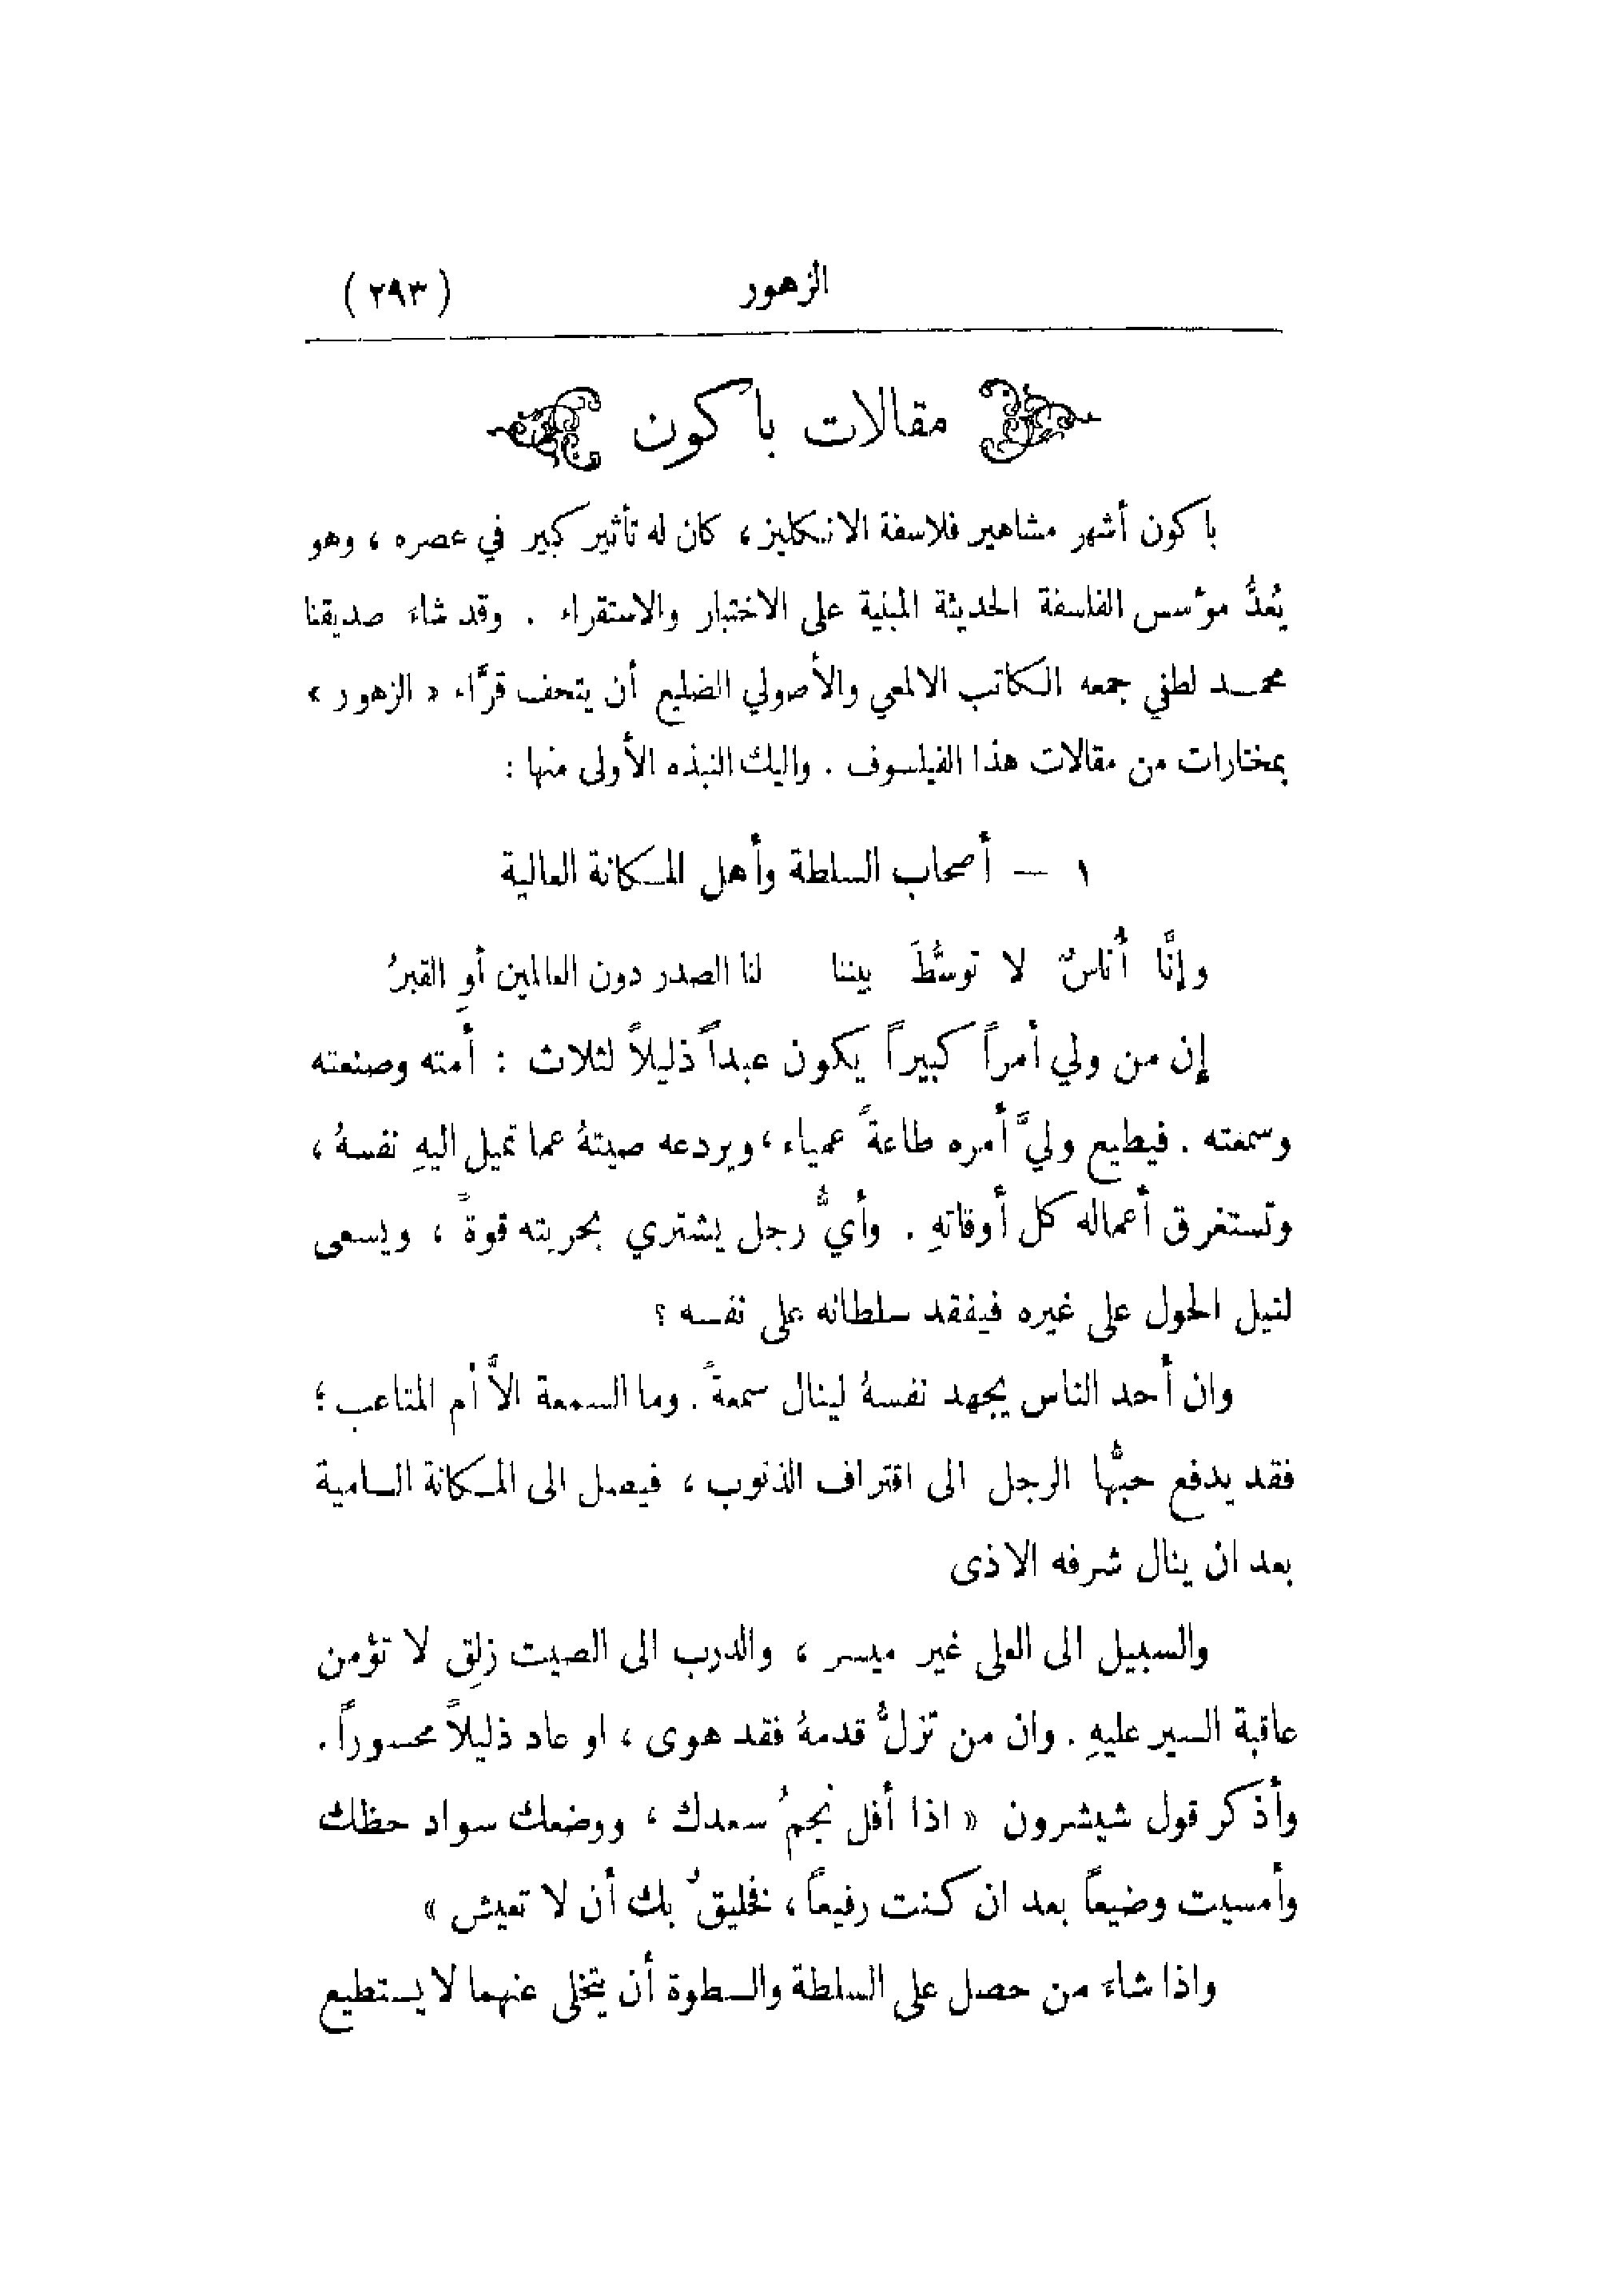 الزهور (٢٩٣)
مقالات باكون
باكون أشهر مشاهير فلاسفة الانكليز، كان له تأثير كبير في عصره، وهو
يُعدُّ مؤسس الفلسفة الحديثة المبنية على الاختبار والاستقراء . وقد شاءَ صديقنا
محمد لطفي جمعه الكاتب الالمعي والأصولي الضليع أن يتحف قرَّاء « الزهور »
بمختارات من مقالات هذا الفيلسوف . واليك النبذه الأولى منها :
١ — أصحاب السلطة وأهل المكانة العالية
وإنَّا أُناسٌ لا توسُّطَ بيننا لنا الصدر دون العالمين أوِ القبرُ
إن من ولي أمراً كبيراً يكون عبداً ذليلاً لثلاث : أمته وصنعته
وسمعته . فيطيع وليَّ أمره طاعةً عمياء، ويردعه صيتهُ عما تميل اليهِ نفسهُ،
وتستغرق أعماله كل أوقاتهِ . وأيُّ رجل يشتري بحريته قوةً، ويسعى
لنيل الحول على غيره فيفقد سلطانه على نفسه ؟
وان أحد الناس يجهد نفسهُ لينال سمعةً . وما السمعة الاَّ أم المتاعب؛
فقد يدفع حبُّها الرجل الى اقتراف الذنوب، فيصل الى المكانة السامية
بعد ان ينال شرفه الاذى
والسبيل الى العلى غير ميسر، والدرب الى الصيت زلِق لا تؤمن
عاقبة السير عليهِ . وان من تزلُّ قدمهُ فقد هوى، او عاد ذليلاً محسوراً .
وأذكر قول شيشرون « اذا أفل نجمُ سعدك، ووضعك سواد حظك
وأمسيت وضيعاً بعد ان كنت رفيعاً، فخليقٌ بك أن لا تعيش »
واذا شاءَ من حصل على السلطة والسطوة أن يتخلى عنهما لا يستطيع